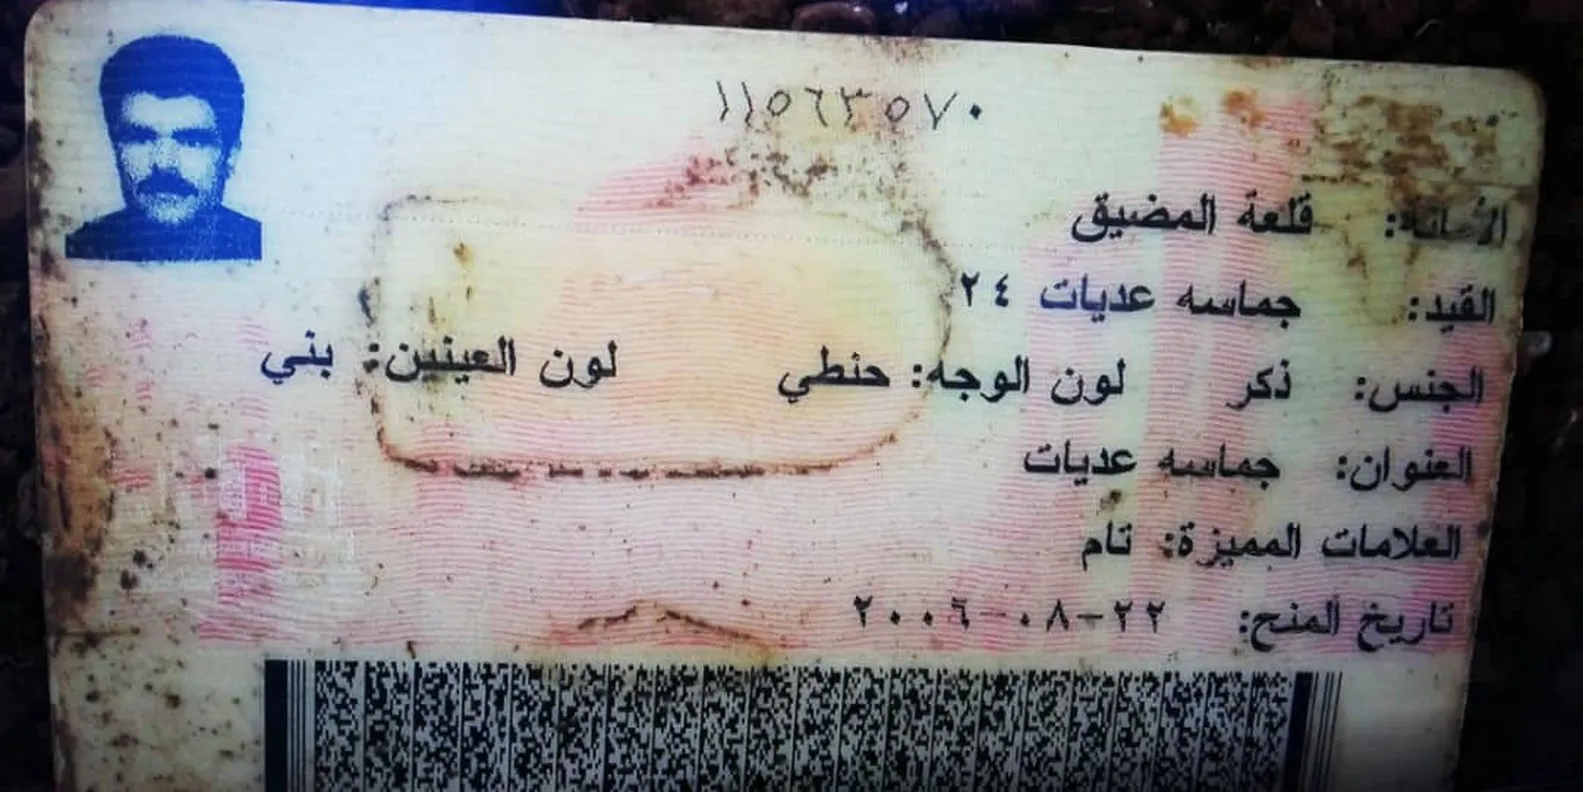 ١١٥٦٣٥٧٠
الأمانة: قلعة المضيق
القيد: جماسه عديات ٢٤
الجنس: ذكر لون الوجه: حنطي لون العينين: بني
العنوان: جماسه عديات
العلامات المميزة: تام
تاريخ المنح: ٢٢-٠٨-٢٠٠٦